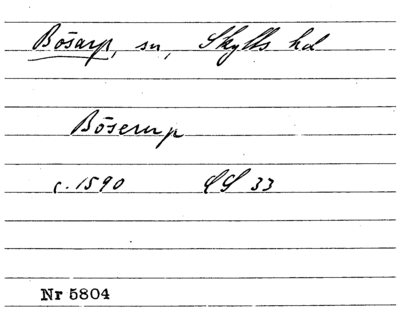 Bösarp, sn, Skytts hd
Böserup
c. 1590 LS 33
Nr 5804